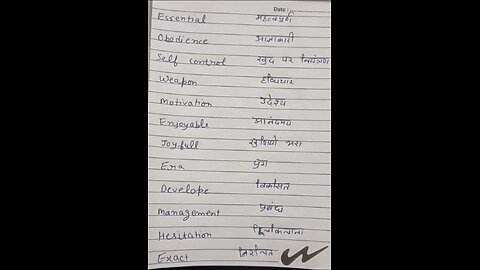 Date :
Essential महत्वपूर्ण
Obedience आज्ञाकारी
Self control खुद पर नियंत्रण
Weapon हथियार
Motivation उदेश्य
Enjoyable आनंदमय
Joyfull खुशियों भरा
Era युग
Develope विकसित
Management प्रबंध
Hesitation
Exact निश्चित